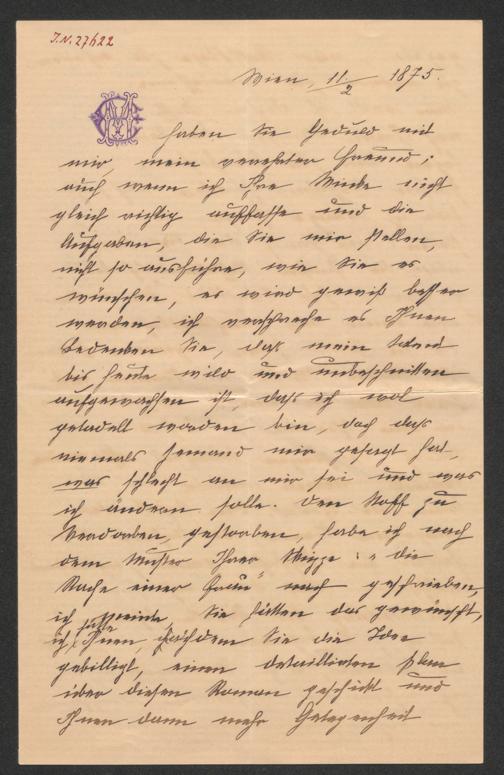 J.N. 27622
Wien, 11/2 1875.
Haben Sie Geduld mit
mir, mein verehrter Freund;
auch wenn ich Ihre Winke nicht
gleich richtig auffasse und die
Aufgaben, die Sie mir stellen,
nicht so ausführe, wie Sie es
wünschen, es wird gewiß besser
werden, ich verspreche es Ihnen
Bedenken Sie, daß mein Talent
bis heute wild und unbeschnitten
aufgewachsen ist, daß ich wol
getadelt worden bin, doch daß
niemals jemand mir gesagt hat,
was schlecht an mir sei und was
ich ändern solle. Den Stoff zu
Verdorben, gestorben, habe ich nach
dem Muster Ihrer Skizze: „die
Rache einer Frau" nach geschrieben,
ich meinte, Sie hätten das gewünscht,
ich hatte Ihnen, nachdem Sie die Idee
gebilligt, einen detaillirten Plan
über diesen Roman geschickt und
Ihnen dann mehr Gelegenheit